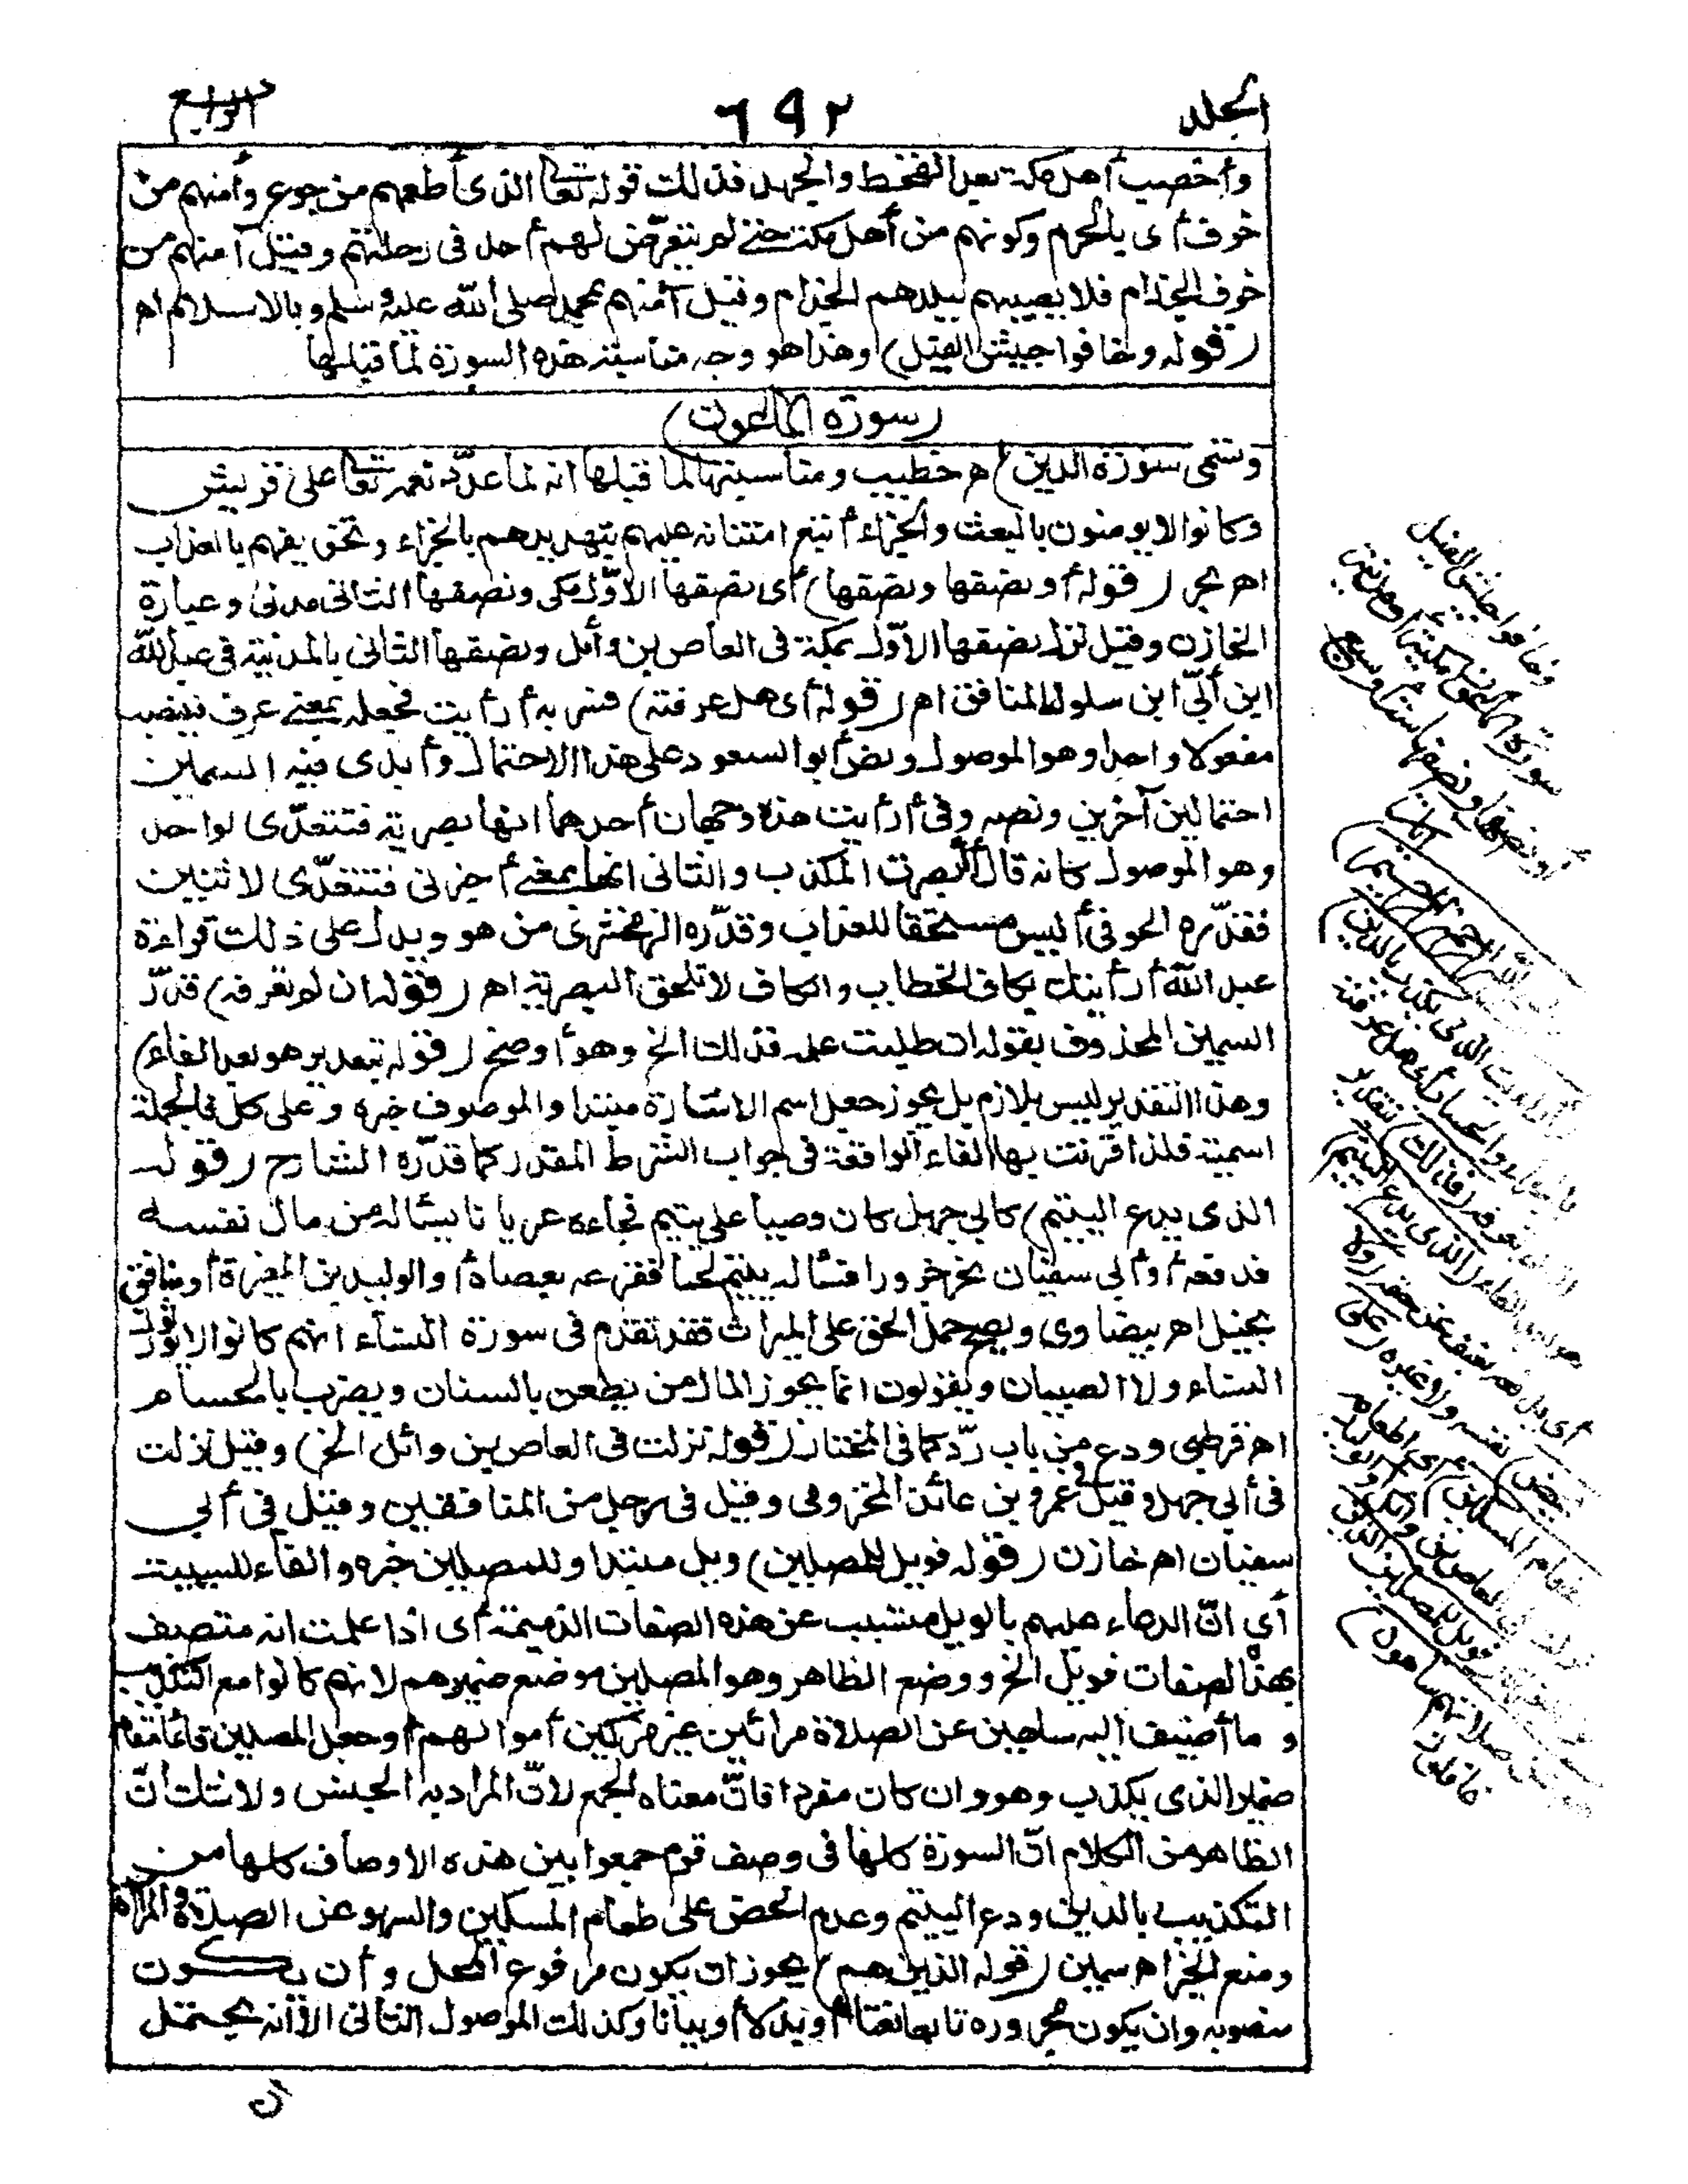 الجلد ٦٩٢ الرابع
وأخصب أهل مكة بعد القحط والجهد فذلك قوله تعالى الذى أطعمهم من جوع وأمنهم من
خوف أى بالحرم وكونهم من أهل مكة حتى لم يتعرّض لهم أحد فى رحلتهم وقيل آمنهم من
خوف الجذام فلا يصيبهم ببلدهم الجذام وقيل آمنهم بمحمد صلى الله عليه وسلم وبالاسلام اه
(قوله وخافوا جيش الفيل) وهذا هو وجه مناسبة هذه السورة لما قبلها
(سورة الماعون)
وتسمى سورة الدين اه خطيب ومناسبتها لما قبلها انه لما عدّد نعمه تعالى على قريش
وكانوا لا يومنون بالبعث والجزاء أتبع امتنانه عليهم بتهديدهم بالجزاء وتخويفهم بالعذاب
اهم بحر (قوله أو نصفها ونصفها) أى نصفها الاوّل مكى ونصفها الثانى مدنى وعبارة
الخازن وقيل نزل نصفها الاوّل بمكة فى العاص بن وأئل ونصفها الثانى بالمدينة فى عبد الله
ابن أبىّ ابن سلول المنافق اه (قوله أى هل عرفته) فسر به أرأيت فجعله بمعنى عرف فينصب
مفعولا واحدا وهو الموصول ونص أبو السعود على هذا الاحتمال وأبدى فيه السمين
احتمالين آخرين ونصه وفى أرأيت هذه وجهان أحدهما انها بصرية فتتعدّى لواحد
وهو الموصول كانه قال أأبصرت المكذب والثانى انها بمعنى أخبرنى فتتعدّى لاثنين
فقدّره الحوفى أليس مستحقا للعذاب وقدّره الزمخشرى من هو ويدل على ذلك قراءة
عبد الله أرأيتك بكاف الخطاب والكاف لا تلحق البصرية اهم (قوله ان لم تعرفه) قدّر
السمين المحذوف بقوله ان طلبت علمه فذلك الخ وهو أوضح (قوله بتعدير هو بعد الفاء)
وهذا التقدير ليس بلازم بل يجوز جعل اسم الاشارة مبتدا والموصوف خبره وعلى كل فالجملة
اسمية فلذا قرنت بها الفاء الواقعة فى جواب الشرط المقدر كما قدّره الشارح (قوله
الذى يدع اليتيم) كابى جهل كان وصيا على يتيم فجاءه عريانا يسئاله من مال نفسه
فدفعه أو أبى سفيان نحر جزورا فسئاله يتيم لحما فقرعه بعصاه أو الوليد بن المغيرة أو منافق
بخيل اهم بيضاوى ويصح حمل الحق على الميراث فقد تقدم فى سورة النساء انهم كانوا لا يورثون
النساء ولا الصبيان ويقولون انما يحوز المال من يطعن بالسنان ويضرب بالحسام
اهم قرطبى ودع من باب ردّ كما فى المختار (قوله نزلت فى العاص بن وائل الخ) وقيل نزلت
فى أبى جهل وقيل فى عمرو بن عائذ المخزومى وقيل فى رجل من المنافقين وقيل فى أبى
سفيان اهم خازن (قوله فويل للمصلين) ويل مبتدا وللمصلين خبره والفاء للسببية
أى انّ الدعاء عليهم بالويل متسبب عن هذه الصفات الذميمة أى اذا علمت انه متصف
بهذه الصفات فويل الخ ووضع الظاهر وهو المصلين موضع ضميرهم لانهم كانوا مع التكذيب
وما أضيف اليه ساهين عن الصلاة مرائين غير مزكين أموالهم أو جعل المصلين قائما مقام
ضمير الذى يكذب وهو وان كان مفردا فانّ معناه الجمع لانّ المراد به الجنس ولا شك أنّ
الظاهر من الكلام انّ السورة كلها فى وصف قوم جمعوا بين هذه الاوصاف كلها من
التكذيب بالدين ودع اليتيم وعدم الحض على طعام المسكين والسهو عن الصلاة والمراآة
ومنع الخير اهم سمين (قوله الذين هم) يجوز ان يكون مرفوع المحل وأن يكون
منصوبه وان يكون مجروره تابعا نعتا أو بدلا أو بيانا وكذلك الموصول الثانى الا أنه يحتمل
ان
وخافوا جيش الفيل
سورة الماعون مكية أو مدنية
أو نصفها ونصفها ست أو سبع
آيات
الله الرحمن الرحيم
أرأيت الذى يكذب بالدين
هل عرفته
فذلك
الذى يدع اليتيم
أى يدفعه بعنف عن حقه (ولا
يحض) نفسه ولا غيره (على
طعام المسكين) أى اطعامه
فويل للمصلين الذين
صلاتهم ساهون)
غافلون